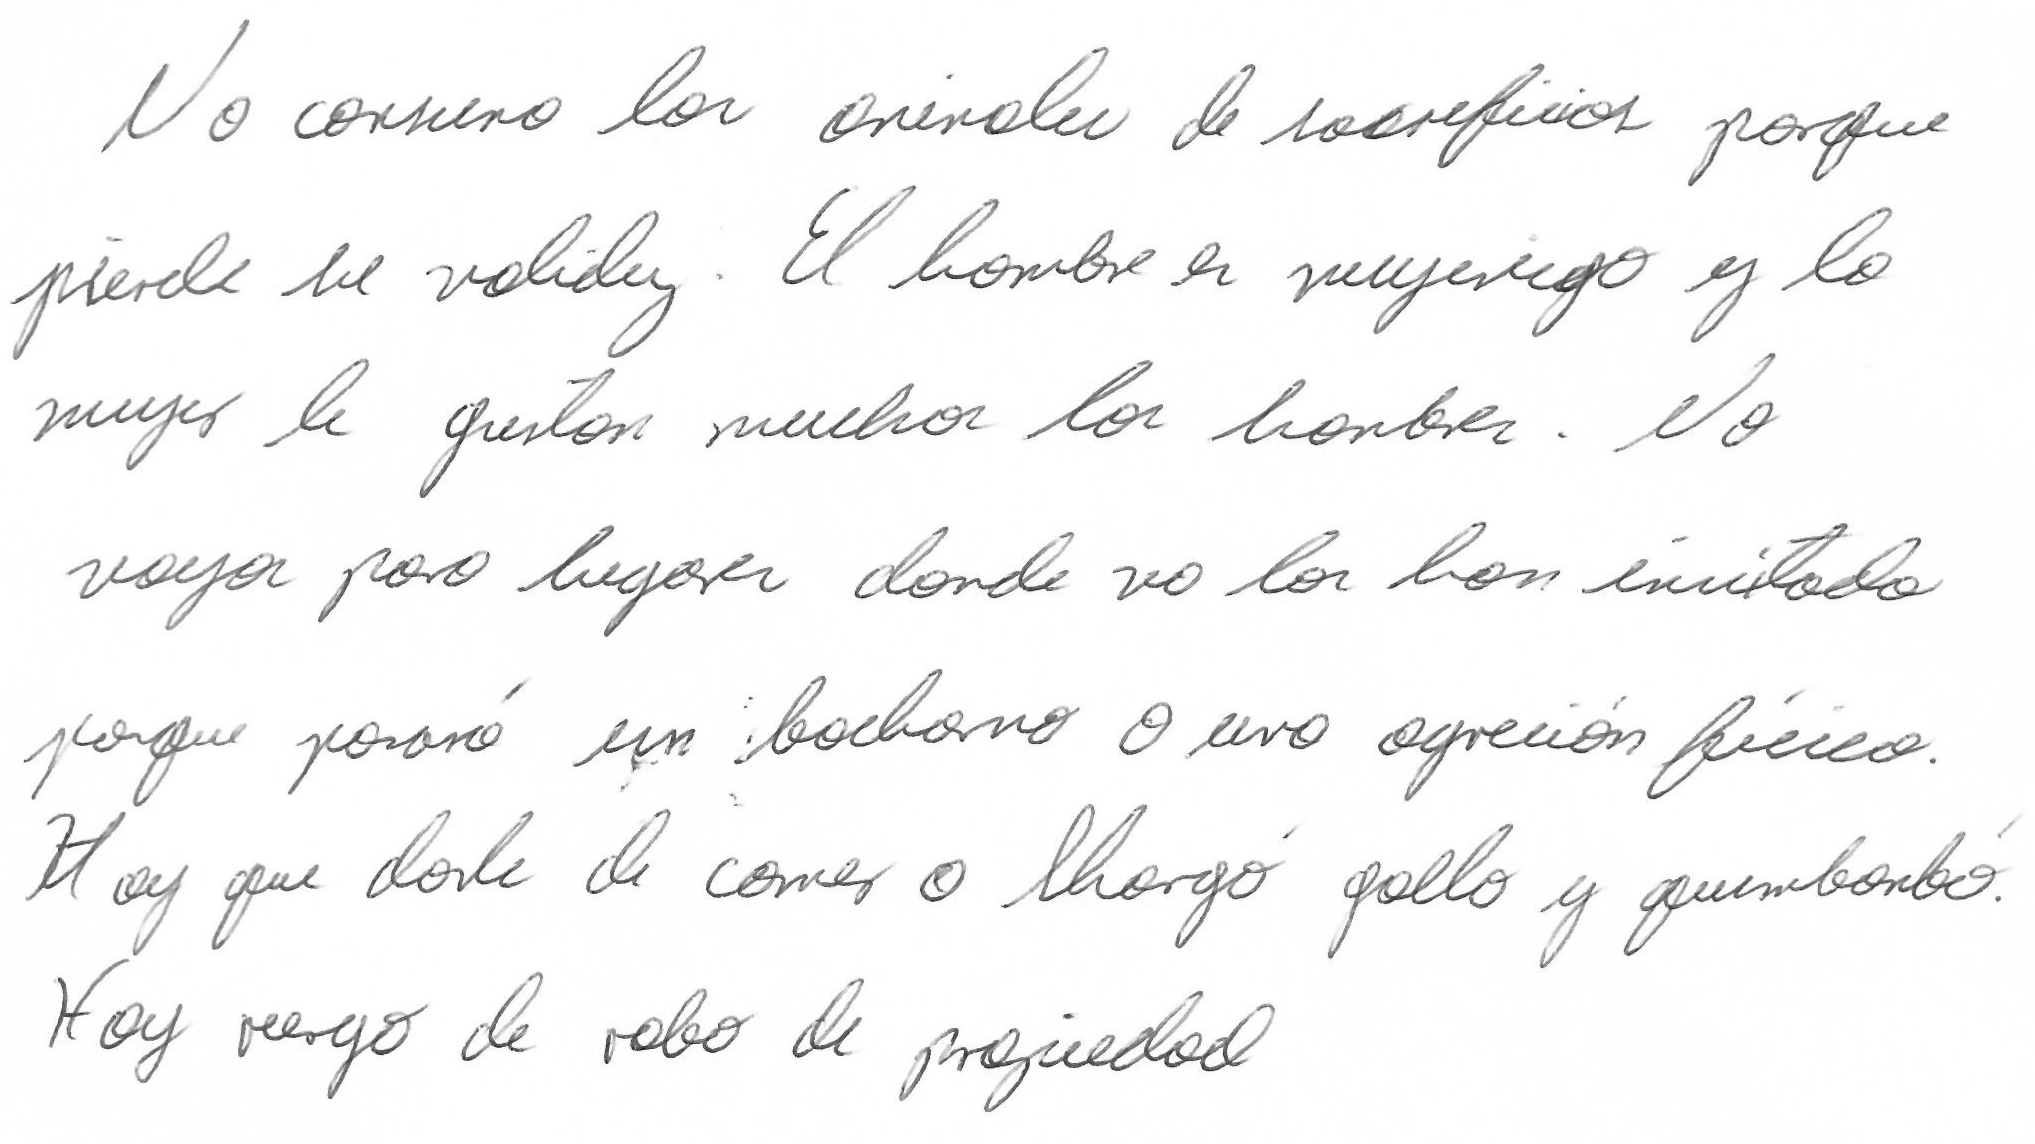 No consuma los animales de sacrificios porque
pierde su validez. El hombre es mujeriego y la
mujer le gustan muchos los hombres. No
vayan para lugares donde no los han invitado
porque pasará un bochorno o una agresión física.
Hay que darle de comer a Shangó gallo y quimbombó.
Hay riesgo de robo de propiedad